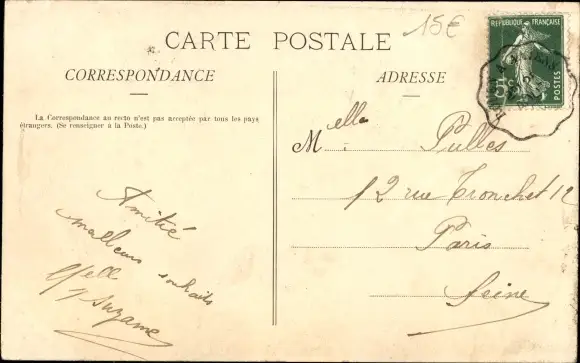 15€
RÉPUBLIQUE FRANÇAISE
5c
POSTES
CARTE POSTALE
CORRESPONDANCE
ADRESSE
La Correspondance au recto n'est pas acceptée par tous les pays
étrangers. (Se renseigner à la Poste.)
Melle Pulles
12 rue Tronchet 12
Paris
Seine
Amitié
meilleurs souhaits
Suzanne